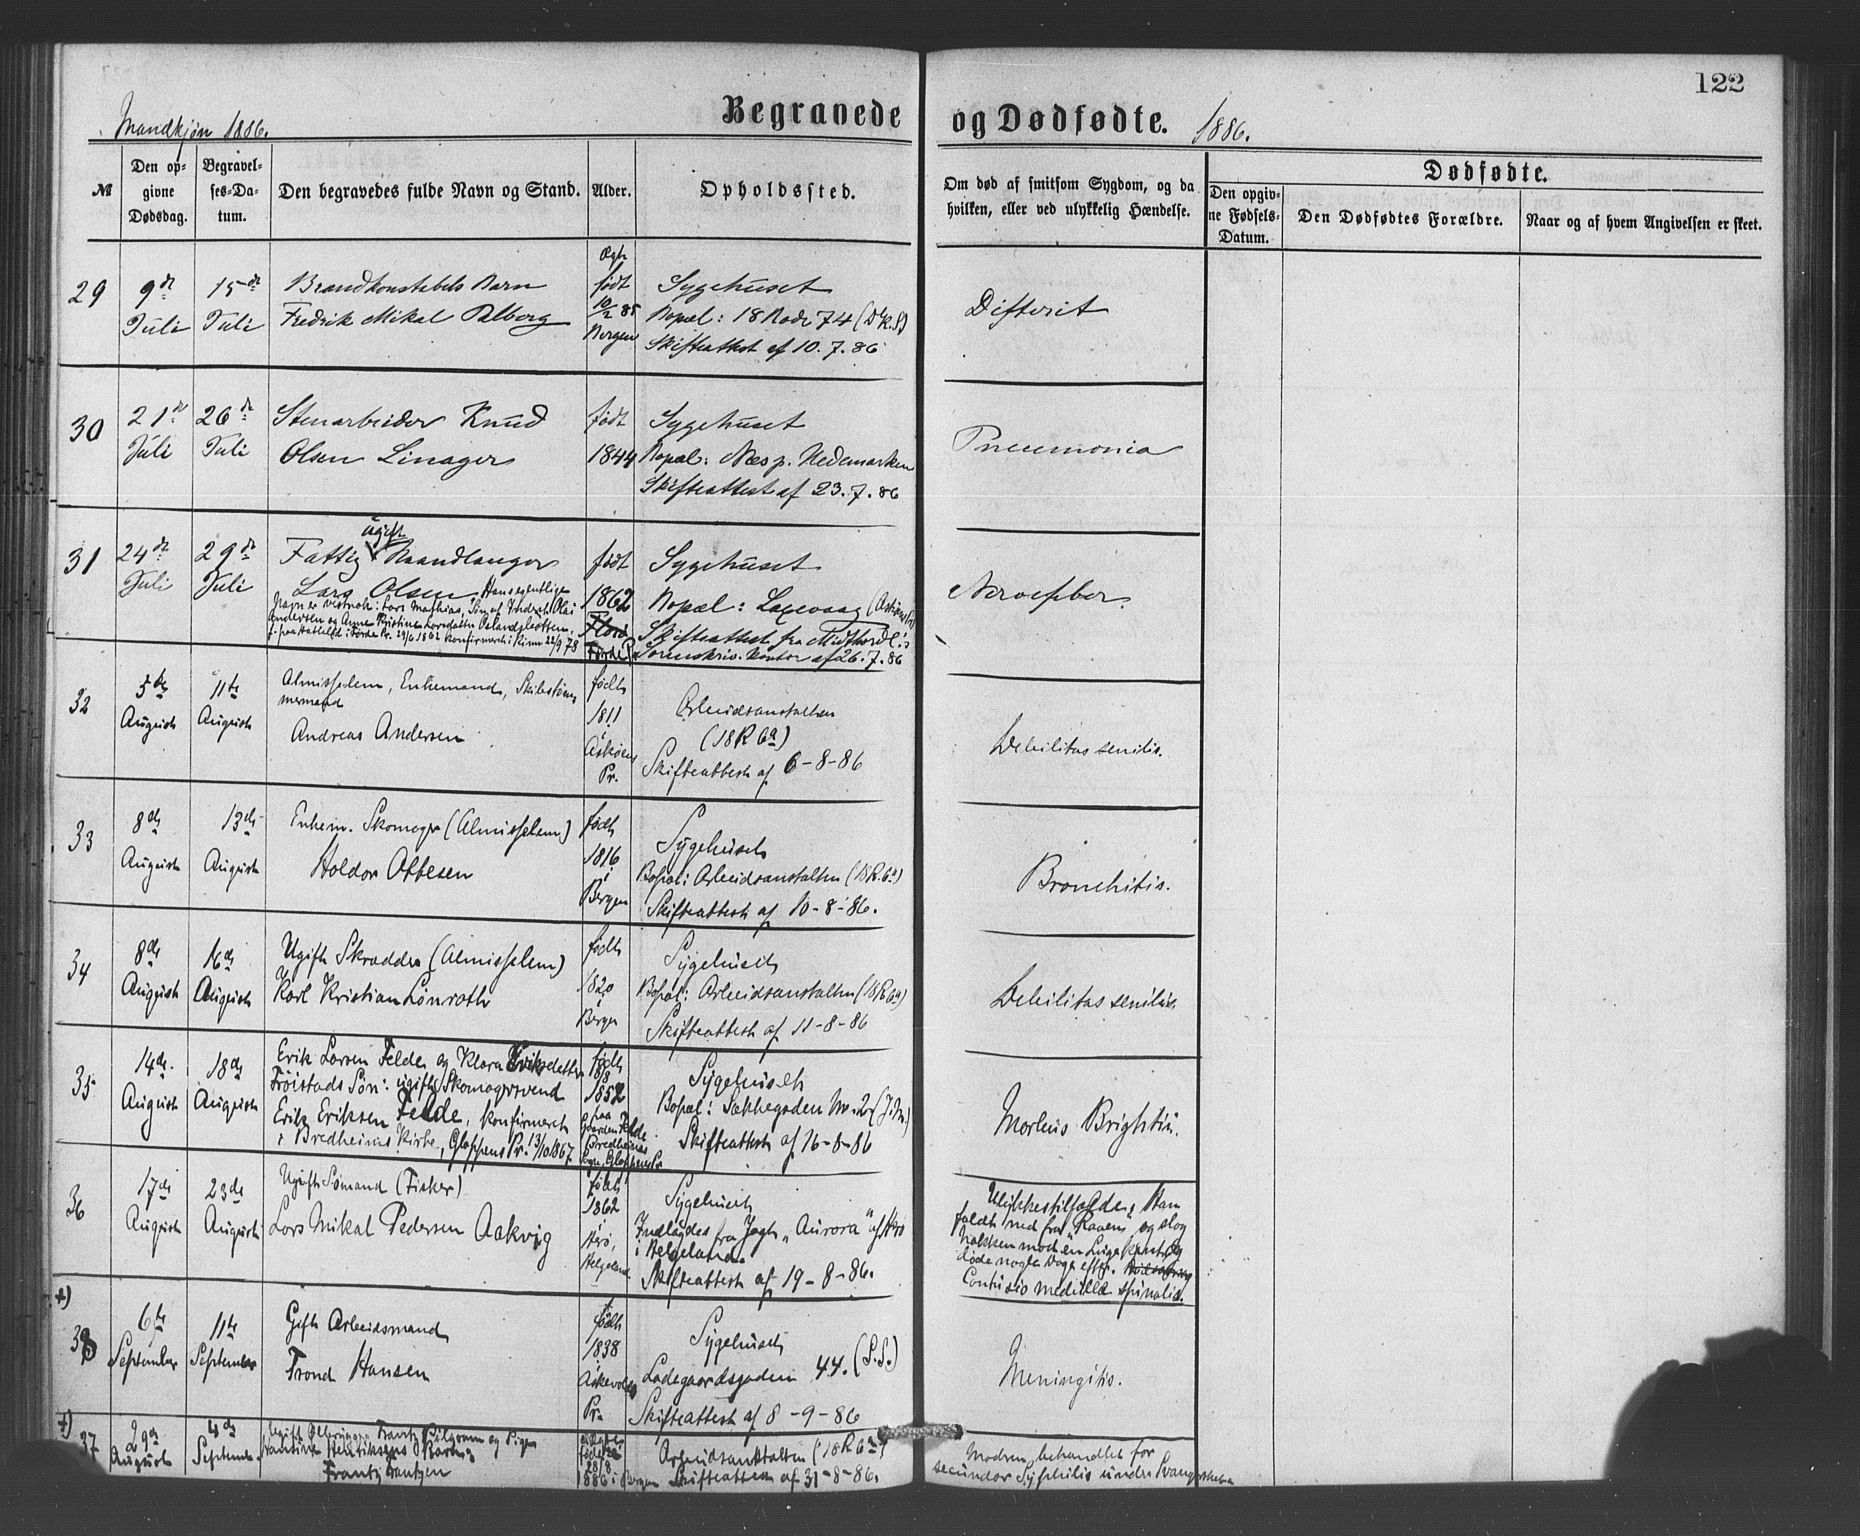 122
Mandkjøn 1886.
Begravede og Dødfødte. 1886.
№
Den opgivne Dødsdag.
Begravelses-Datum.
Den begravedes fulde Navn og Stand.
Alder.
Opholdssted.
Om død af smitsom Sygdom, og da hvilken, eller ved ulykkelig Hændelse.
Dødfødte.
Den opgivne Fødsels-Datum.
Den Dødfødtes Forældre.
Naar og af hvem Angivelsen er skeet.
29
9de Juli
15de Juli
Brandkonstabels Barn
Fredrik Mikal Palberg
Ægte
født
10/2 85
Bergen
Sygehuset
Bopæl: 18 Rode 74 (D.K.S)
Skifteattest af 10.7.86
Difterit
30
21de Juli
26de Juli
Stenarbeider Knud
Olsen Linager
født
1844
Sygehuset
Bopæl: Næs p. Hedemarken
Skifteattest af 23.7.86
Pneumonia
31
24de Juli
29de Juli
ugift
Fattig Haandlanger
Lars Olsen Hans egentlige
Navn er vistnok: Lars Mathias, Søn af Indrest Olai
Andersen og Anne Kristine Larsdatter
f. paa Hatleld i Førde Pr. 29/6 1862 konfirmeret i Kinn 22/9 78
født
1862
Florø
Førde Pr
Sygehuset
Bopæl: Laxevaag
Skifteattest fra Midthordl.'s
Sorenskriv. Kontor af 26.7.86
Nervefeber.
32
5te August
11te August
Almisselem, Enkemand, Skibstømmermand
Andreas Andersen
født
1811
i
Askøens
Pr.
Arbeidsanstalten
(18 R 6a)
Skifteattest af 6-8-86
Debilitas senilis.
33
8de August
13de August
Enkem. Skomager (Almisselem)
Holdor Ottesen
født
1816
i
Bergen
Sygehuset
Bopæl: Arbeidsanstalten (18R.6a)
Skifteattest af 10-8-86.
Bronchitis.
34
8de August
16de August
Ugift Skrædder (Almisselem)
Karl Kristian Lönroth
født
1820
i
Bergen
Sygehuset
Bopæl: Arbeidsanstalten (18R6a)
Skifteattest af 11-8-86
Debilitas senilis
35
14de August
18de August
Erik Larsen Felde og Klara Eriksdatter
Frøistads Søn: ugift Skomagersvend
Erik Eriksen Felde, konfirmeret
i Bredheims Kirke, Gloppens Pr. 13/10 1867.
født
1852
paa
Gaarden Felde
Bredheims
Sogn, Gloppens Pr
Sygehuset
Bopæl: Sækkegaden No. 2
Skifteattest af 16-8-86
Morbus Brightii.
36
17de August
23de August
Ugift Sømand (Fisker)
Lars Mikal Pedersen Aakvig
født
1862
i
Herø,
Helgeland
Sygehuset
Indlagdes fra Jagt „Aurora" af Herø
i Helgeland.
Skifteattest af 19-8-86.
Ulykkestilfælde, Han
faldt ned fra „Raaen" og slog
Nakken mod en Lugekarm og
døde nogle Dage efter.
Contusio medullæ spinalis.
+)
38
6te September
11te September
Gift Arbeidsmand
Trond Hansen
født
1838
i
Askevolds
Pr.
Sygehuset
Ladegaardsgaden 44. (S.S.)
Skifteattest af 8-9-86
Meningitis.
+)
37
29de August
4de September
Frantz Pilgram og Pige
Hantine Henriksens Barn:
Frantz Frantzen
uægte
født
28/8
1886 i Bergen
Arbeidsanstalten (18R6a)
Skifteattest af 31-8-86.
Modren behandlet for
secundær Syphilis under Svangerskabet